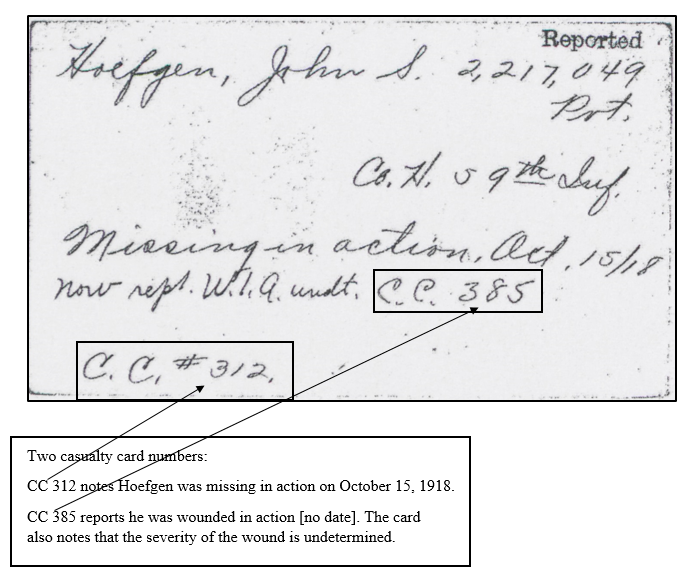 Reported
Hoefgen, John S. 2,217,049
Pvt.
Co. H. 59th Inf.
Missing in action, Oct. 15/18
now rept. W.I.A. undt. C.C. 385
C. C. # 312.
Two casualty card numbers:
CC 312 notes Hoefgen was missing in action on October 15, 1918.
CC 385 reports he was wounded in action [no date]. The card
also notes that the severity of the wound is undetermined.